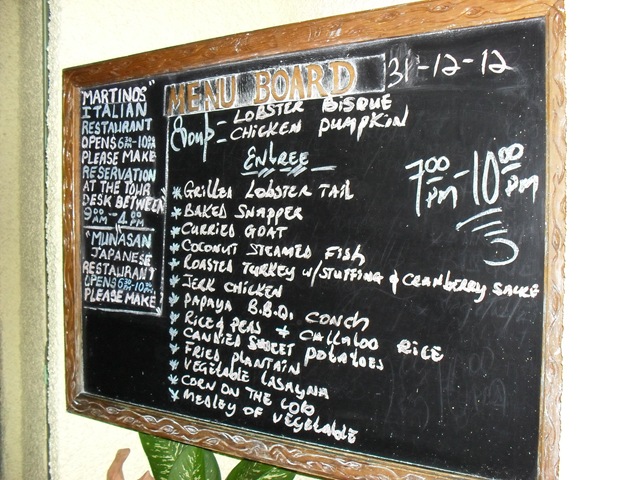 "MARTINOS"
ITALIAN
RESTAURANT
OPENS 6:30-10:00
PLEASE MAKE
RESERVATION
AT THE TOUR
DESK BETWEEN
9:00 AM - 4:00 PM
"MUNASAN
JAPANESE
RESTAURANT
OPENS 6:30-10:30
PLEASE MAKE
MENU BOARD
31-12-12
Soup - LOBSTER BISQUE
- CHICKEN PUMPKIN
ENTREE
7:00 PM - 10:00 PM
* GRILLED LOBSTER TAIL
* BAKED SNAPPER
* CURRIED GOAT
* COCONUT STEAMED FISH
* ROASTED TURKEY W/STUFFING & CRANBERRY SAUCE
* JERK CHICKEN
* PAPAYA B.B.Q. CONCH
* RICE & PEAS + CALLALOO RICE
* CANDIED SWEET POTATOES
* FRIED PLANTAIN
* VEGETABLE LASAGNA
* CORN ON THE COB
* MEDLEY OF VEGETABLE